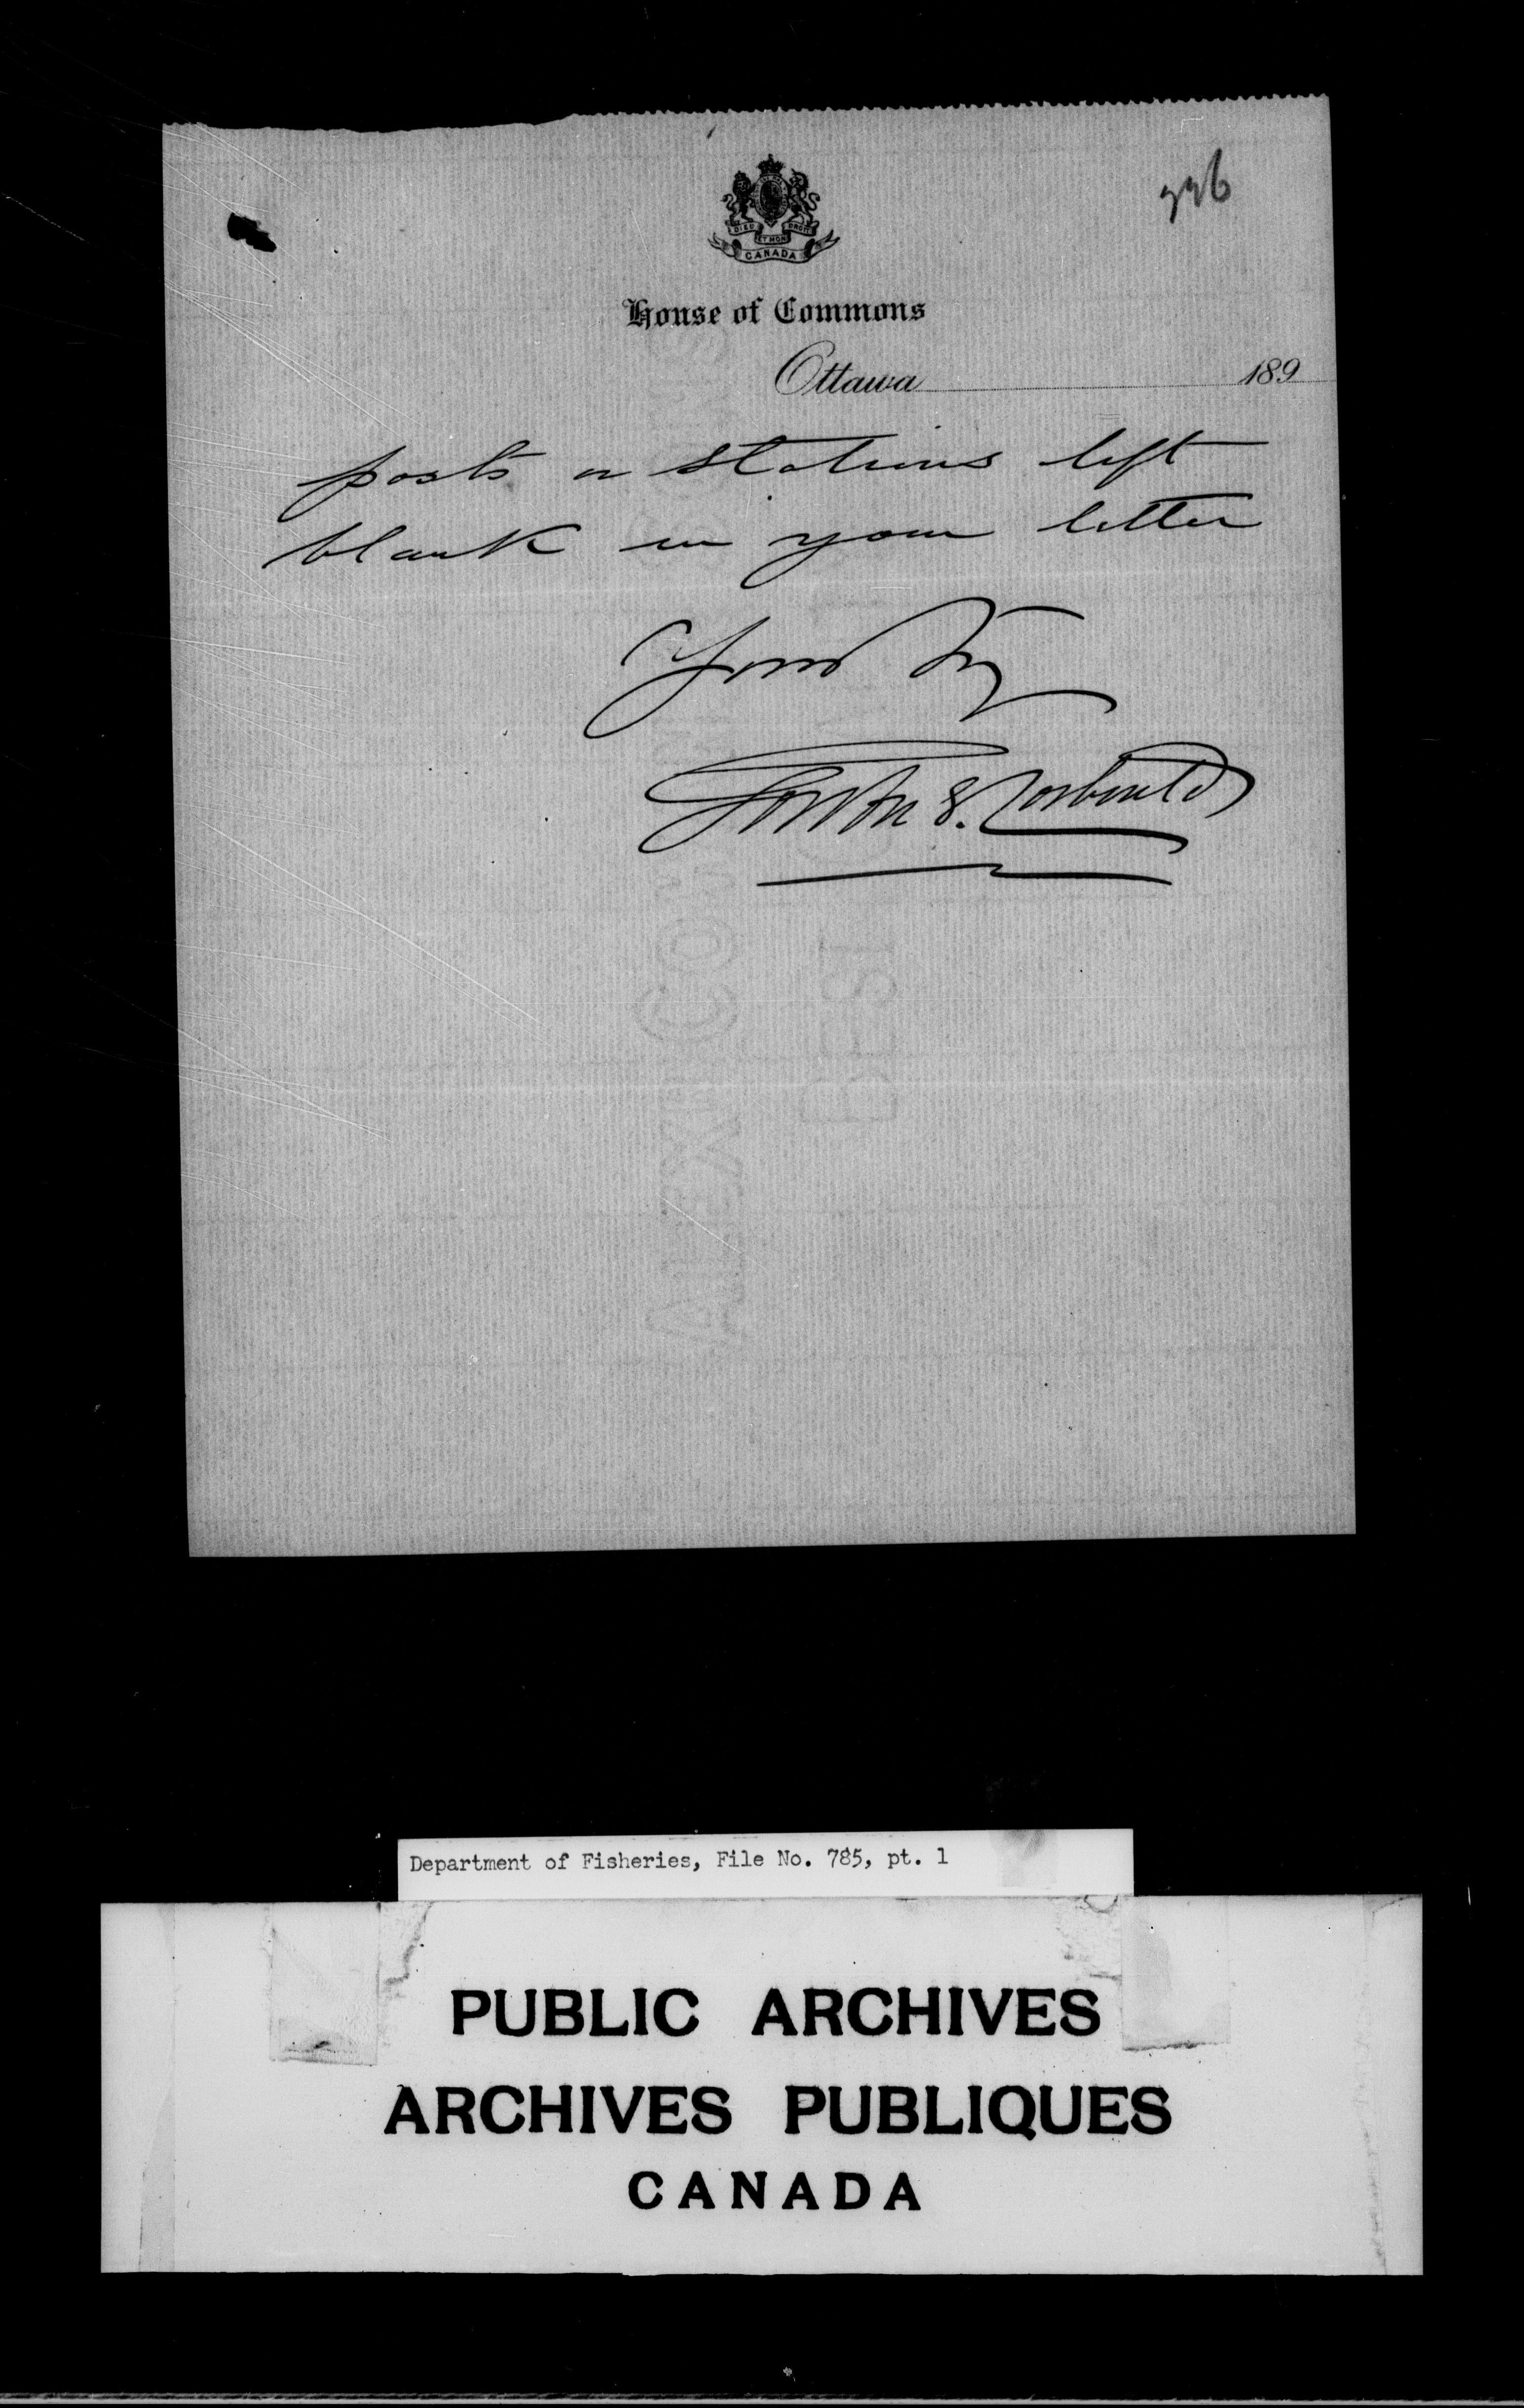 336
DIEU ET MON DROIT
CANADA
House of Commons
Ottawa 189
posts or stations left
blank in your letter
Yours try
Gordon E. Corbould
Department of Fisheries, File No. 785, pt. 1
PUBLIC ARCHIVES
ARCHIVES PUBLIQUES
CANADA